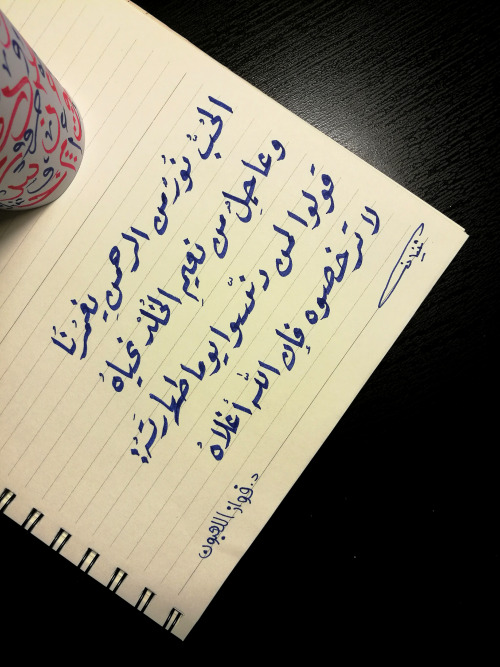 الحُبُّ نُورٌ من الرحمنِ يغمُرُنَا
وعاجِلٌ من نعيمِ الخُلدِ نحياهُ
قولوا لمن دنَّسوا يوما طهارتَهُ:
لا ترخصوه فإن اللّه أغلاهُ
د. فواز اللعبون